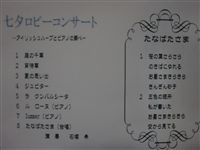 七夕ロビーコンサート
～アイリッシュハープとピアノの調べ～
1 庭の千草
2 貝殻草
3 夏の思い出
4 ジュピター
5 ラ クンパルシータ
6 ムーンローズ（ピアノ）
7 lunar（ピアノ）
8 たなばたさま（合唱）
演奏
たなばたさま
1 笹の葉さらさら
のきばにゆれる
お星さまきらきら
きんぎん砂子
2 五色の短冊
私が書いた
お星さまきらきら
空から見てる